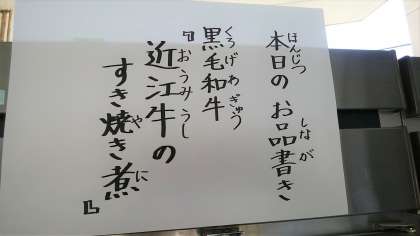 本日の お品書き
ほんじつ しなが
黒毛和牛
くろげわぎゅう
『近江牛の
おうみうし
すき焼き煮』
や に